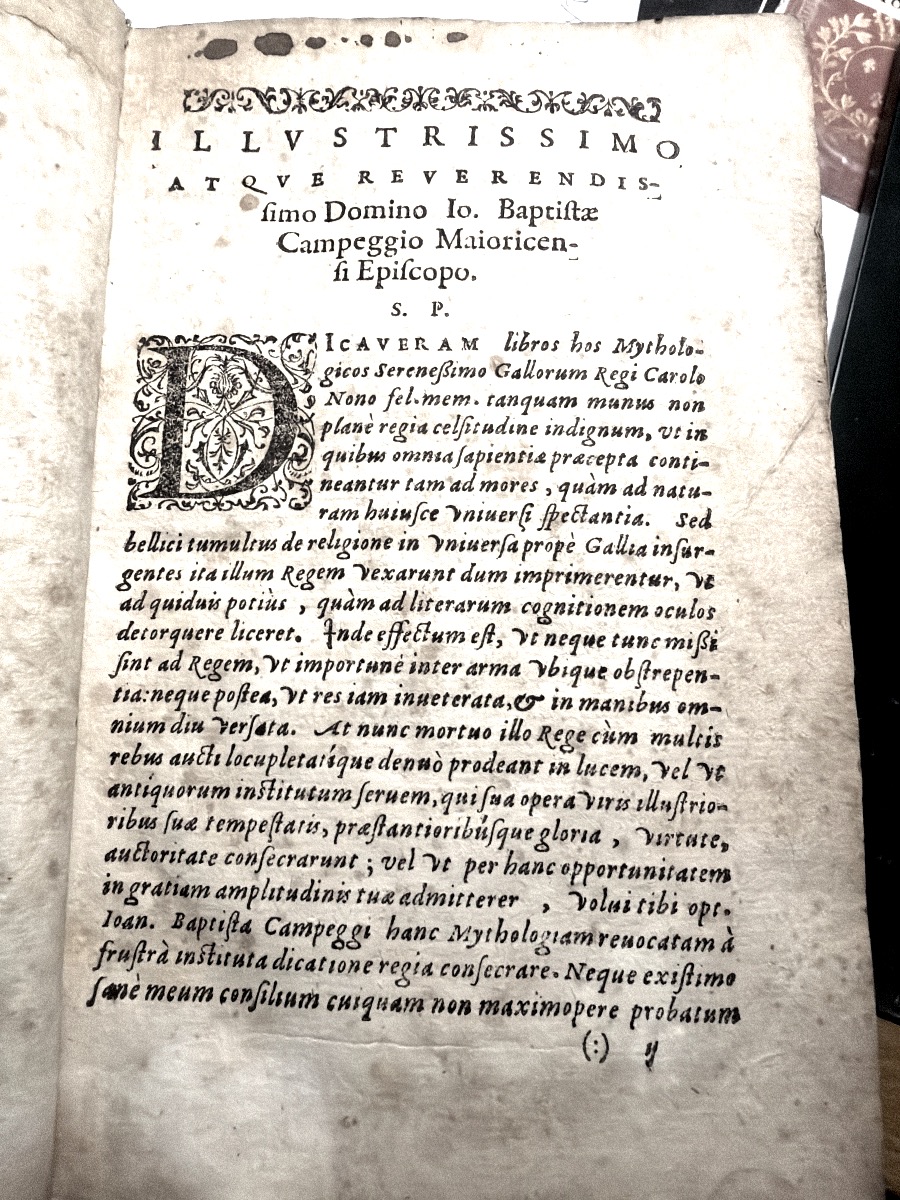 ILLVSTRISSIMO
ATQVE REVERENDIS-
ſimo Domino Io. Baptiſtæ
Campeggio Maioricen-
ſi Epiſcopo.
S. P.
DICAVERAM libros hos Mytholo-
gicos Sereneßimo Gallorum Regi Carolo
Nono fel. mem. tanquam munus non
planè regia celſitudine indignum, vt in
quibus omnia ſapientiæ præcepta conti-
neantur tam ad mores, quàm ad natu-
ram huiuſce vniuerſi ſpectantia. Sed
bellici tumultus de religione in vniuerſa propè Gallia inſur-
gentes ita illum Regem vexarunt dum imprimerentur, vt
ad quiduis potiùs, quàm ad literarum cognitionem oculos
detorquere liceret. Inde effectum eſt, vt neque tunc mißi
ſint ad Regem, vt importunè inter arma vbique obſtrepen-
tia: neque poſtea, vt res iam inueterata, & in manibus om-
nium diu verſata. At nunc mortuo illo Rege cùm multis
rebus aucti locupletatíque denuò prodeant in lucem, vel vt
antiquorum inſtitutum ſeruem, qui ſua opera viris illuſtrio-
ribus ſuæ tempeſtatis, præſtantioribúſque gloria, virtute,
auctoritate conſecrarunt; vel vt per hanc opportunitatem
in gratiam amplitudinis tuæ admitterer, volui tibi opt.
Ioan. Baptiſta Campeggi hanc Mythologiam reuocatam à
fruſtrà inſtituta dicatione regia conſecrare. Neque exiſtimo
ſanè meum conſilium cuiquam non maximopere probatum
(:) ij